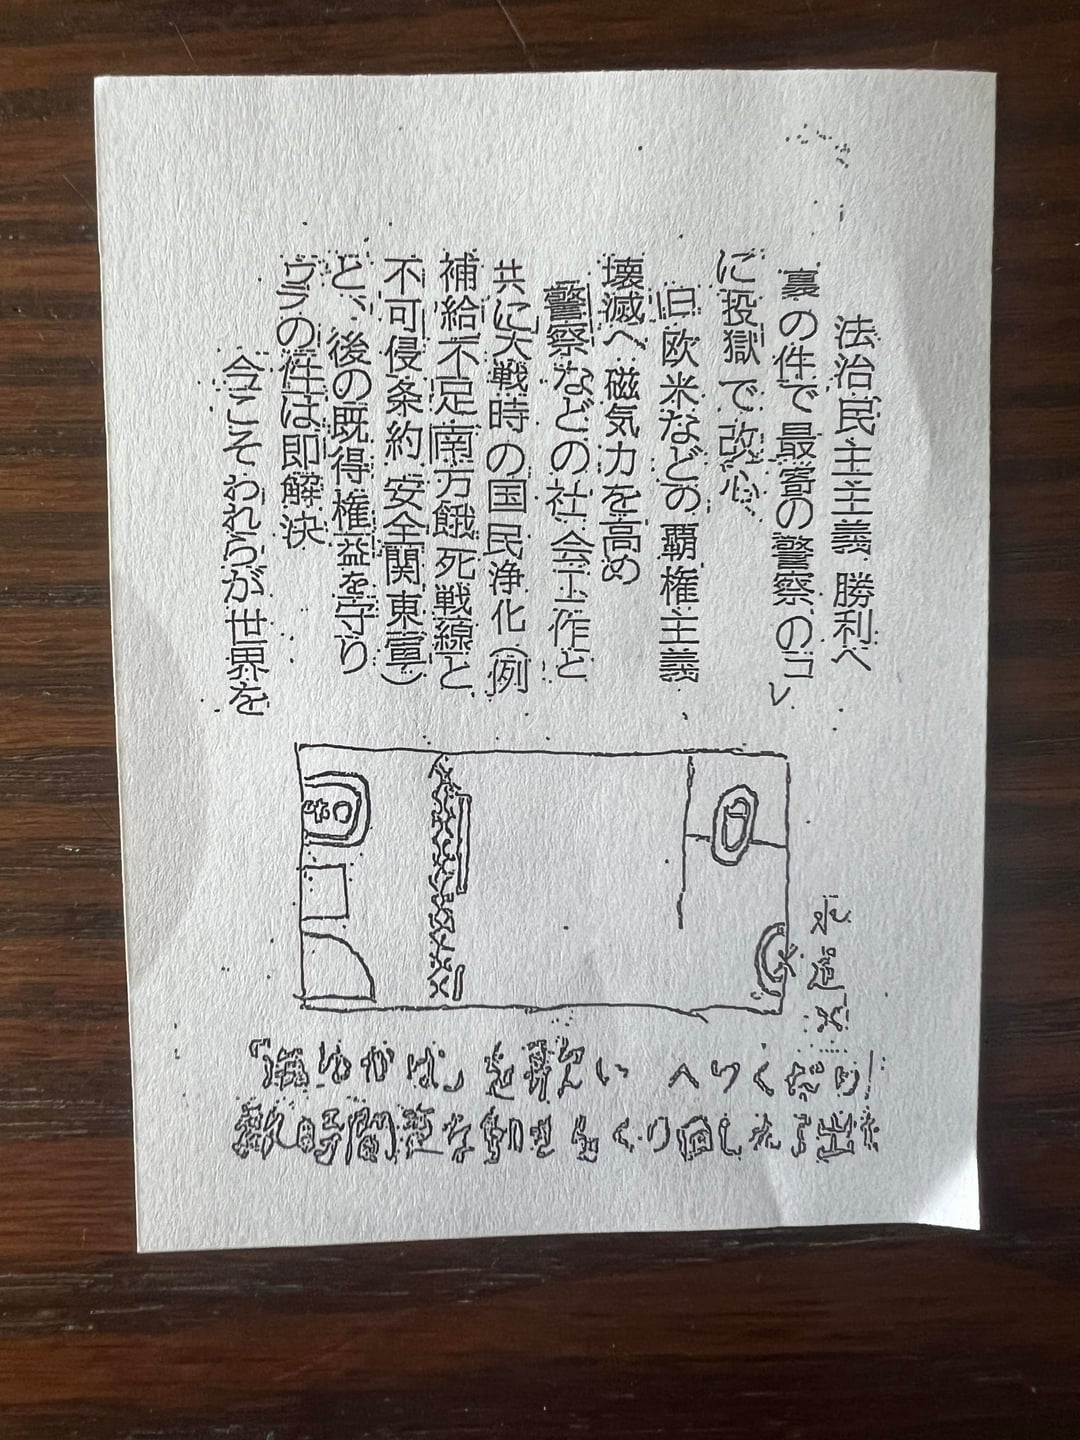 法治民主主義 勝利へ
裏の件で最寄の警察のコレ
に投獄で改心、
旧欧米などの覇権主義
壊滅へ磁気力を高め
警察などの社会工作と
共に大戦時の国民浄化(例
補給不足南方餓死戦線と
不可侵条約安全関東軍)
と、後の既得権益を守り
ウラの件は即解決
今こそわれらが世界を
水道
「海ゆかば」を歌い へりくだり
数時間 くり返し